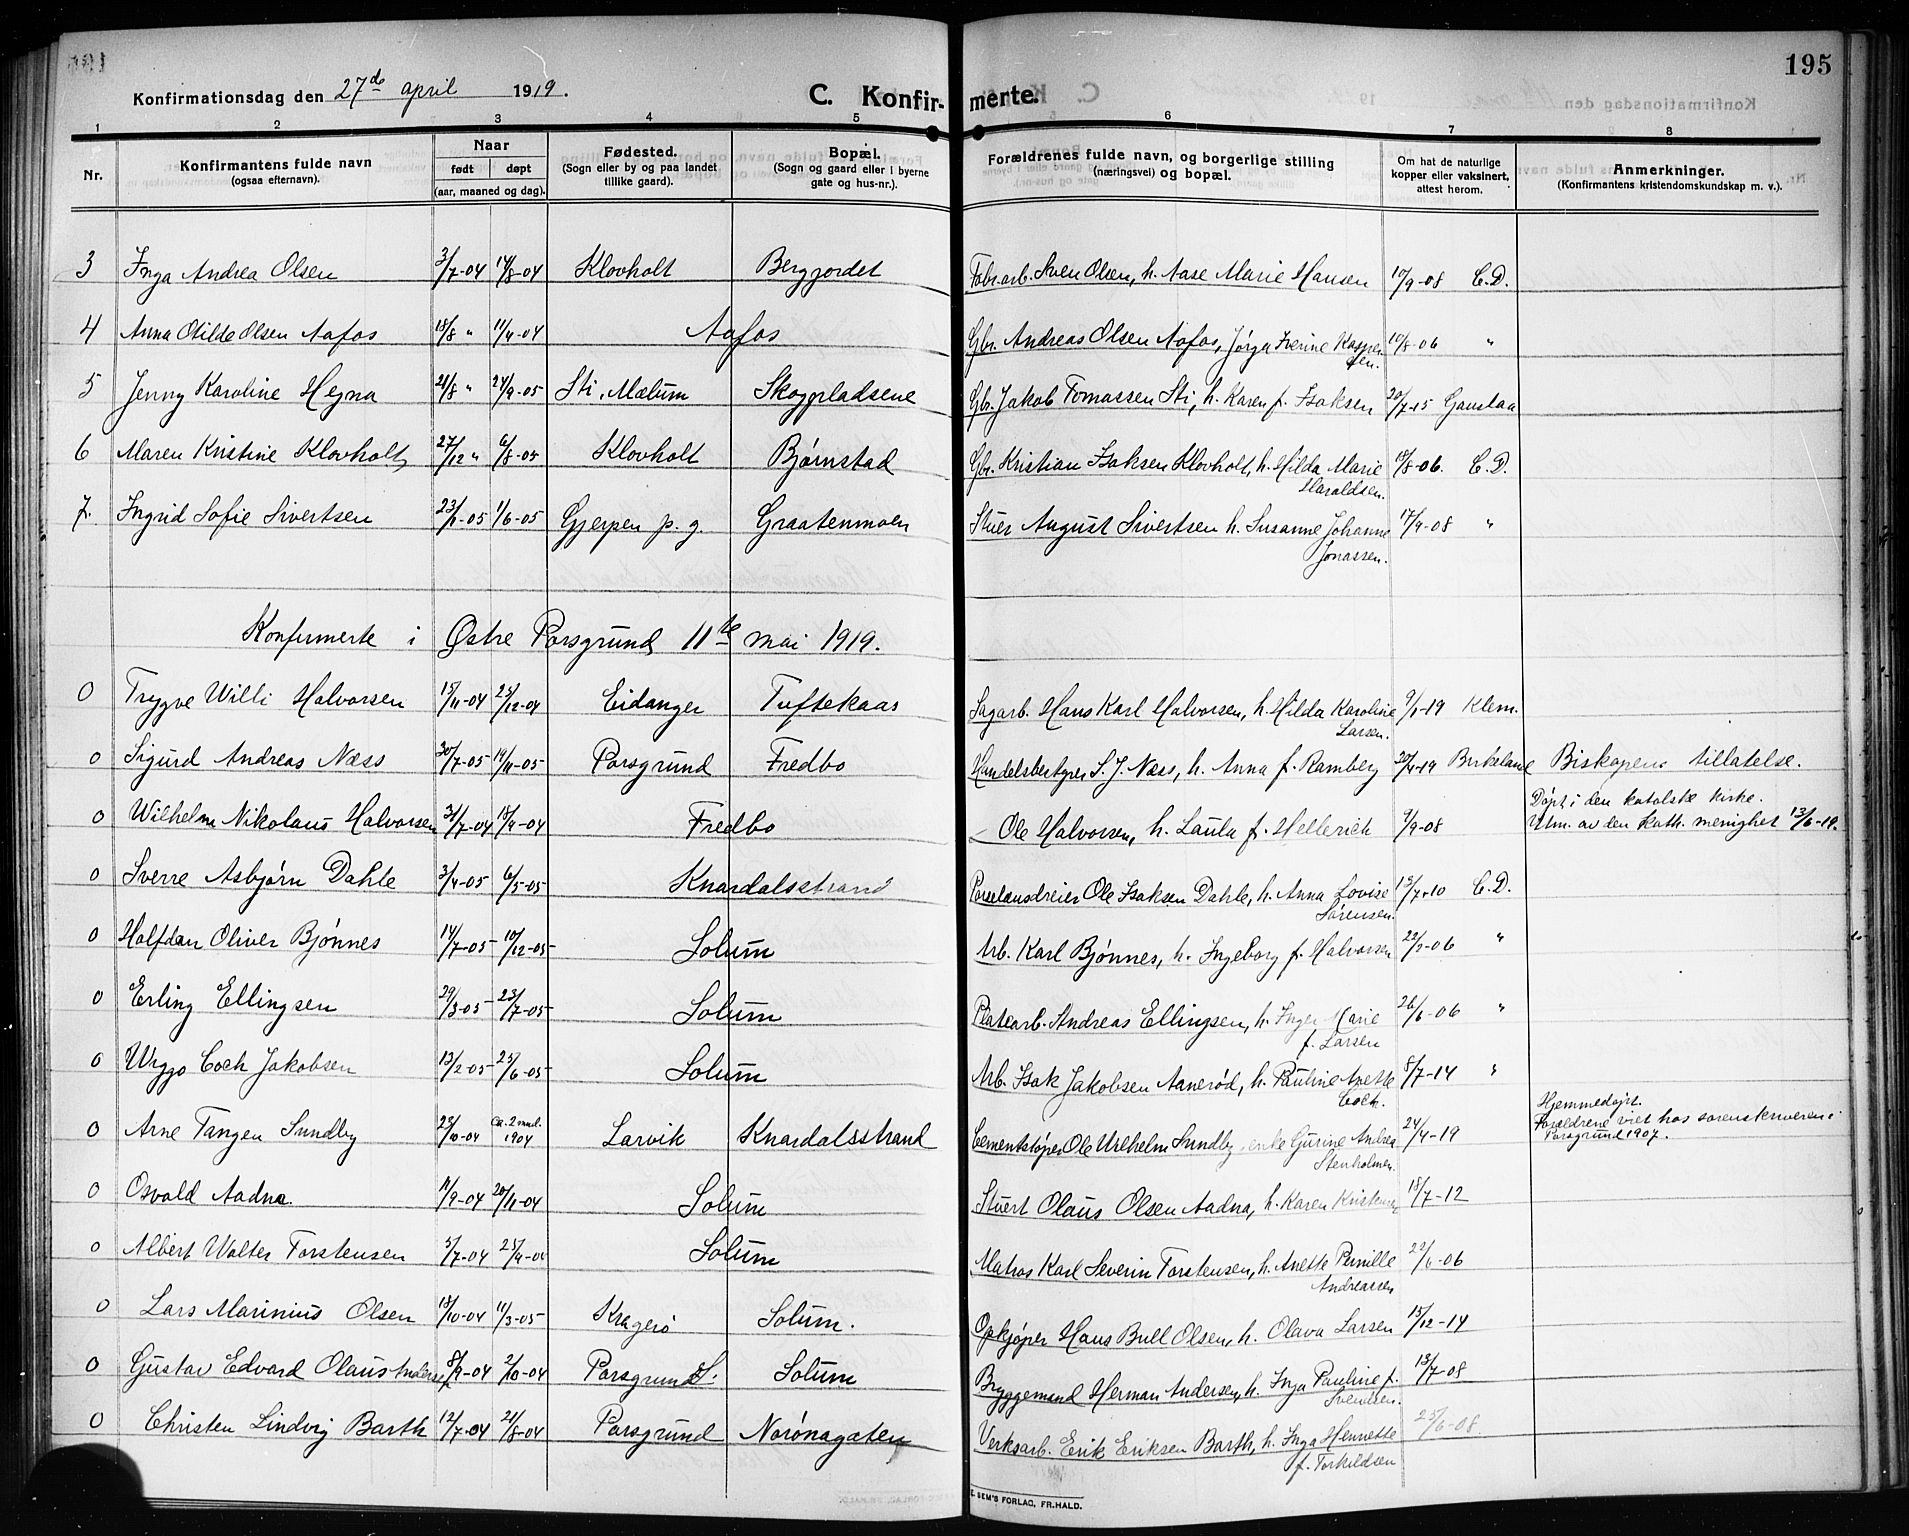 195
Konfirmationsdag den 27de april 1919.
C. Konfir- merte.
1 2 3 4 5 6 7 8
Nr. Konfirmantens fulde navn (ogsaa efternavn). Naar født døpt (aar, maaned og dag). Fødested. (Sogn eller by og paa landet tillike gaard). Bopæl. (Sogn og gaard eller i byerne gate og hus-nr.). Forældrenes fulde navn, og borgerlige stilling (næringsvei) og bopæl. Om hat de naturlige kopper eller vaksinert, attest herom. Anmerkninger. (Konfirmantens kristendomskundskap m. v.).
3 Inga Andrea Olsen 3/7-04 14/8-04 Klovholt Bergjordet Fabr.arb. Sven Olsen, h. Aase Marie Hansen 10/9-08 C.D.
4 Anna Otilde Olsen Aafos 18/8 " 11/9-04 Aafos Gbr. Andreas Olsen Aafos, Jørga Iverine Kaspersen. 10/8-06 "
5 Jenny Karoline Hegna 21/8 " 24/9-05 Sti, Mælum Skoggpladsene Gbr. Jakob Tomassen Sti, h. Karen f. Isaksen 20/7-15 Gaustaa
6 Maren Kristine Klovholt 27/12 " 6/8-05 Klovholt Bjørnstad Gbr. Kristian Isaksen Klovholt, h. Hilda Marie Haraldsen. 10/8-06. C.D.
7. Ingrid Sofie Sivertsen 23/1-05 1/6-05 Gjerpen p. g. Graatenmoen Stuer August Sivertsen h. Susanne Johanne Jonassen. 17/9-08 "
Konfirmerte i Østre Porsgrund 11te mai 1919.
0 Trygve Willi Halvorsen 15/11-04 25/12-04 Eidanger Tuftekaas Sagarb. Hans Karl Halvorsen, h. Hilda Karoline Larsen. 9/1-19 Klem.
0 Sigurd Andreas Næss 30/7-05 19/11-05 Porsgrund Fredbo Handelsbestyrer S. J. Næss, h. Anna f. Ramberg 20/4-19 Birkeland Biskopens tillatelse.
0 Wilhelm Nikolaus Halvorsen 31/7-04 18/9-04 Fredbo – Ole Halvorsen, h. Laula f. Hellerich 9/9-08 Døpt i den katolske kirke. Utm. av den kath. menighet 13/6-19.
0 Sverre Asbjørn Dahle 3/4-05 6/5-05 Knardalsstrand Porselænsdreier Ole Isaksen Dahle, h. Anna Lovise Sørensen. 13/7-10 C.D.
0 Halfdan Oliver Bjønnes 14/7-05 10/12-05 Solum Arb. Karl Bjønnes, h. Ingeborg f. Halvorsen 22/2-06 "
0 Erling Ellingsen 29/3-05 23/7-05 Solum Platearb. Andreas Ellingsen, h. Inger Marie f. Larsen 26/6-06 "
0 Viggo Coch Jakobsen 13/2-05 25/6-05 Solum Arb. Isak Jakobsen Aanerød, h. Pauline Anette Coch. 8/7-14 "
0 Arne Tangen Sundby 23/10-04 Ca. 2 mnd. 1904 Larvik Knardalsstrand Cementstøper Ole Wilhelm Sundby, enke Gurine Andrea Stenholmen. 24/4-19 Hjemmedøpt. Forældrene viet hos sorenskriveren i Porsgrund 1907.
0 Osvald Aadna. 11/9-04 20/11-04 Solum Stuert Olaus Olsen Aadna, h. Karen Kristensen 18/7-12
0 Albert Walter Torstensen 5/7-04 25/9-04 Solum Matros Karl Severin Torstensen, h. Anette Pernille Andreassen 29/6-06
0 Lars Marinius Olsen 18/10-04 11/3-05 Kragerø Solum. Opkjøper Hans Bull Olsen, h. Olava Larsen 15/12-14
0 Gustav Edvard Olaus Andersen 8/9-04 2/10-04 Porsgrund S. Solum Bryggemand Herman Andersen, h. Inga Pauline f. Svendsen. 13/7-08
0 Christen Lindvig Barth 12/7-04 21/8-04 Porsgrund Norønagaten Verksarb. Erik Eriksen Barth, h. Inga Henriette f. Torkildsen 25/6-08
E. SEM'S FORLAG, FR.HALD.